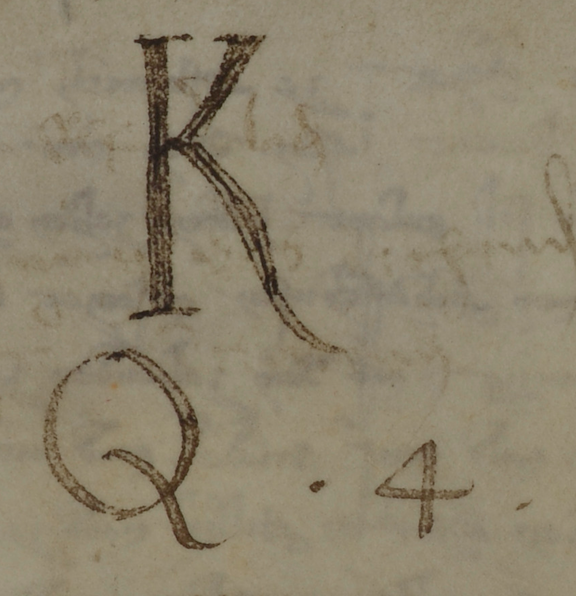 K
Q . 4 .